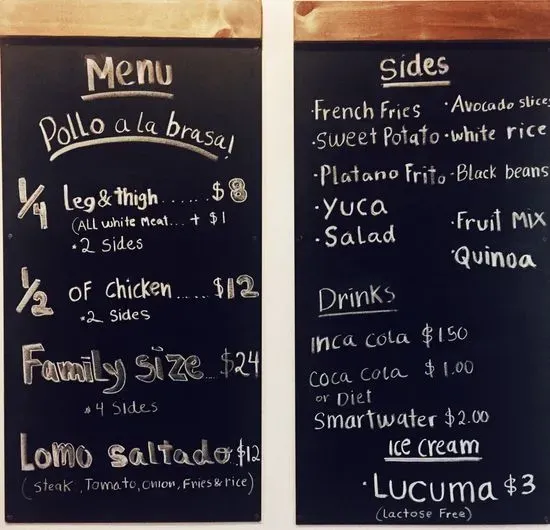 Menu
Pollo a la brasa!
1/4 Leg & thigh ...... $8
(ALL white Meat... + $1
• 2 Sides
1/2 of Chicken ..... $12
• 2 Sides
Family size ... $24
• 4 Sides
Lomo saltado $12
(steak, Tomato, onion, Fries & rice)
Sides
• French Fries
• Sweet Potato
• Platano Frito
• Yuca
• Salad
• Avocado slices
• white rice
• Black beans
• Fruit MIX
• Quinoa
Drinks
Inca cola $1.50
Coca cola $1.00
or Diet
Smartwater $2.00
Ice cream
• Lucuma $3
(lactose Free)